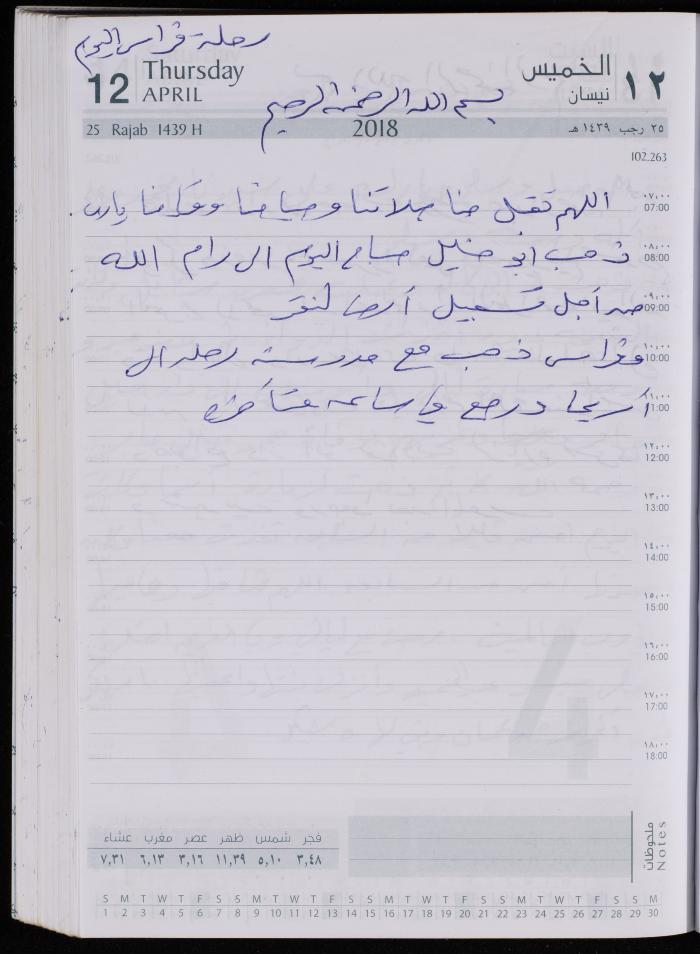 رحلة فراس اليوم
12 Thursday APRIL
الخميس نيسان ١٢
بسم الله الرحمن الرحيم
25 Rajab 1439 H
2018
٢٥ رجب ١٤٣٩ هـ
102.263
اللهم تقبل منا صلاتنا وصيامنا يارب
٠٧:٠٠ 07:00
ذهب ابو خليل صباح اليوم الى رام الله
٠٨:٠٠ 08:00
من أجل تسجيل أرض
٠٩:٠٠ 09:00
وفراس ذهب مع مدرسته رحله الى
١٠:٠٠ 10:00
أريحا ورجع في ساعه متأخره
١١:٠٠ 11:00
١٢:٠٠ 12:00
١٣:٠٠ 13:00
١٤:٠٠ 14:00
١٥:٠٠ 15:00
١٦:٠٠ 16:00
١٧:٠٠ 17:00
١٨:٠٠ 18:00
فجر شمس ظهر عصر مغرب عشاء
٣,٤٨ ٥,١٠ ١١,٣٩ ٣,١٦ ٦,١٣ ٧,٣١
ملحوظات
Notes
S M T W T F S S M T W T F S S M T W T F S S M T W T F S S M
1 2 3 4 5 6 7 8 9 10 11 12 13 14 15 16 17 18 19 20 21 22 23 24 25 26 27 28 29 30